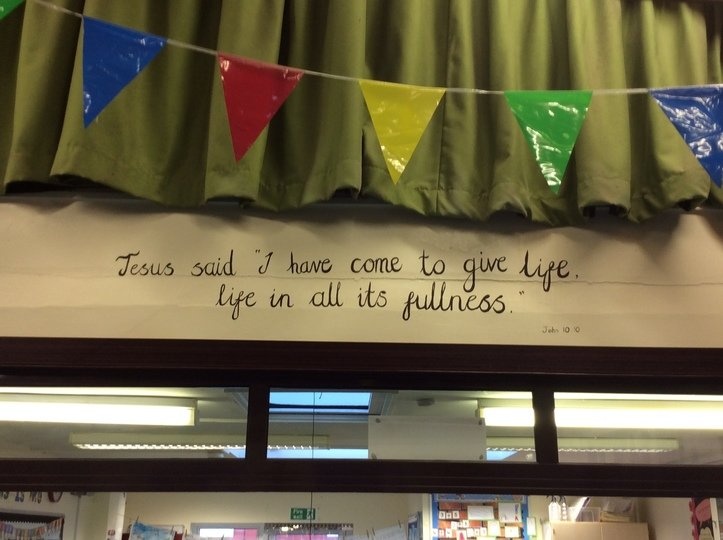 Jesus said "I have come to give life,
life in all its fullness."
John 10 10
Fire exit